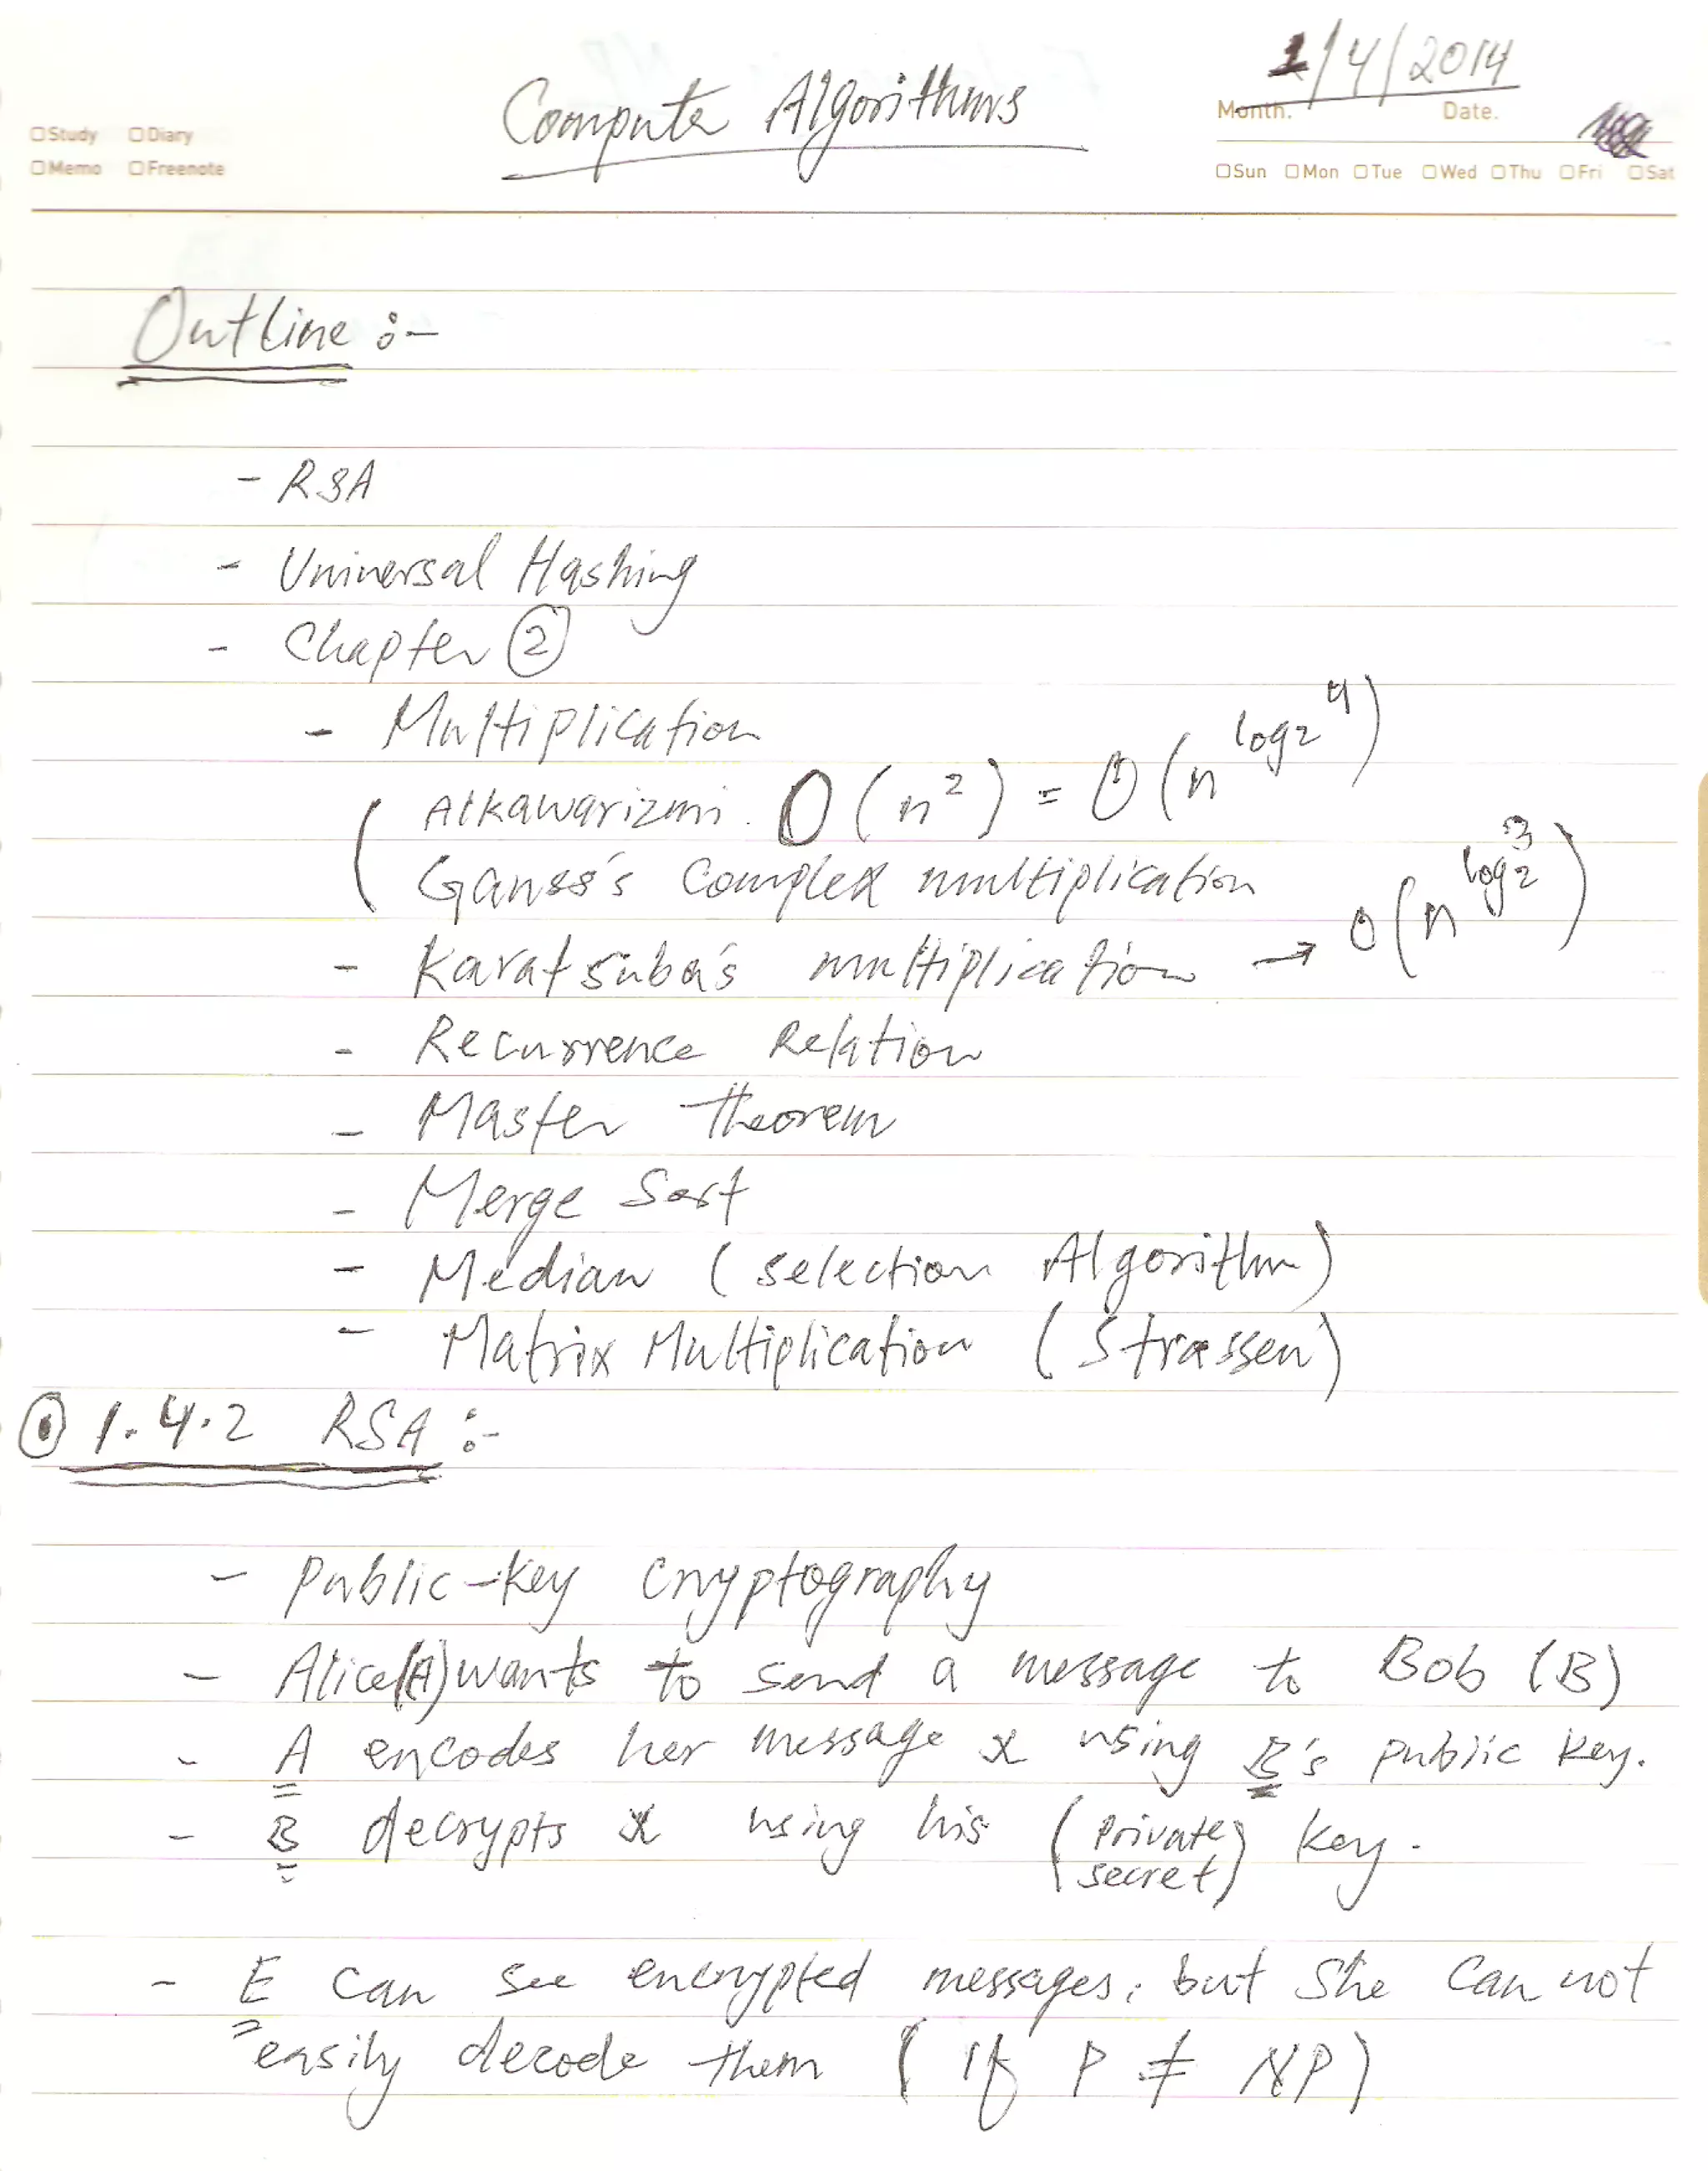 1/4/2014
Computer Algorithms
Month. Date.
□Study □Diary
□Memo □Freenote
□Sun □Mon □Tue □Wed □Thu □Fri □Sat
Outline :-
- RSA
- Universal Hashing
- Chapter ②
- Multiplication
( Alkawarizmi. O(n²) = O(n^log₂4)
Gauss's Complex multiplication
- Karatsuba's multiplication → O(n^log₂3)
- Recurrence Relation
- Master Theorem
- Merge Sort
- Median (selection Algorithm)
- Matrix Multiplication (Strassen)
① 1.4.2 RSA :-
- Public-key Cryptography
- Alice(A) wants to send a message to Bob (B)
- A encodes her message x using B's public key.
- B decrypts x using his (private secret) key.
- E can see encrypted messages, but She Can not
easily decode them (If P ≠ NP)